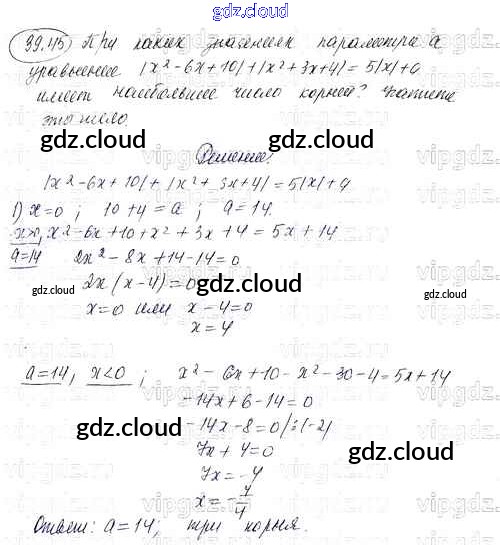 gdz.cloud
39.45) При каких значениях параметра a
уравнение |x²-6x+10|+|x²+3x+4|=5|x|+a
имеет наибольшее число корней? Укажите
это число.
gdz.cloud
Решение:
|x²-6x+10|+|x²+3x+4|=5|x|+a
gdz.cloud
1) x=0; 10+4=a; a=14.
x>0, x²-6x+10+x²+3x+4=5x+14
a=14 2x²-8x+14-14=0
gdz.cloud
2x(x-4)=0
gdz.cloud
x=0 или x-4=0
x=4
a=14, x<0; x²-6x+10-x²-30-4=5x+14
-14x+6-14=0
gdz.cloud
-14x-8=0/:(-2)
gdz.cloud
7x+4=0
7x=-4
x=-7/4
Ответ: a=14; три корня.
gdz.cloud